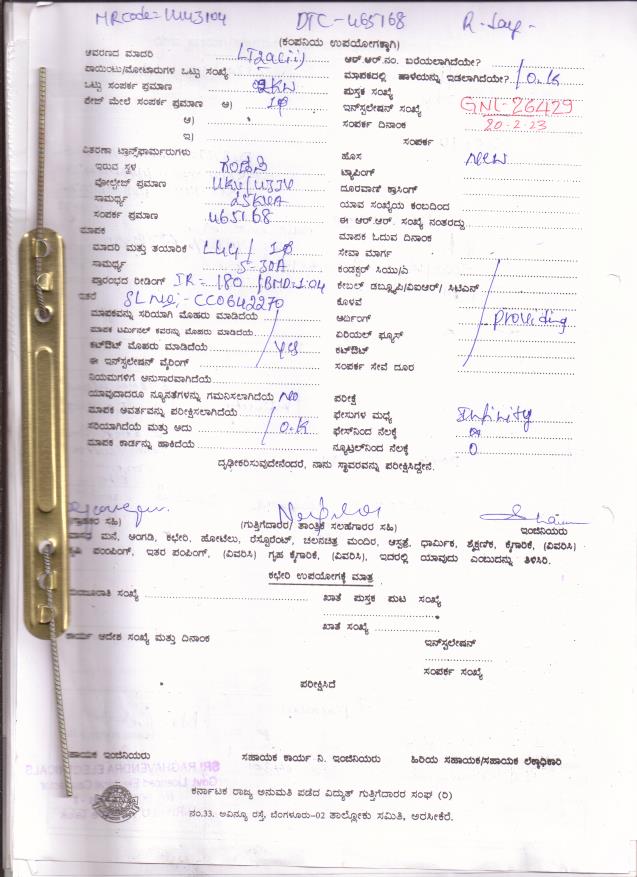 MR code = 1443104 DTC - 465168
(ಕಂಪನಿಯ ಉಪಯೋಗಕ್ಕಾಗಿ)
ಆವರಣದ ಮಾದರಿ LT2a(ii)
ಪಾಯಿಂಟು/ಮೋಟಾರುಗಳ ಒಟ್ಟು ಸಂಖ್ಯೆ
ಒಟ್ಟು ಸಂಪರ್ಕ ಪ್ರಮಾಣ 2KW
ಪೇಜ್ ಮೇಲೆ ಸಂಪರ್ಕ ಪ್ರಮಾಣ ಅ) 1φ
ಆ)
ಇ)
ವಿತರಣಾ ಟ್ರಾನ್ಸ್‌ಫಾರ್ಮರುಗಳು
ಇರುವ ಸ್ಥಳ ಗಂಡಸಿ
ವೋಲ್ಟೇಜ್ ಪ್ರಮಾಣ
ಸಾಮರ್ಥ್ಯ 25KVA
ಸಂಪರ್ಕ ಪ್ರಮಾಣ 465168
ಮಾಪಕ
ಮಾದರಿ ಮತ್ತು ತಯಾರಿಕೆ L&T / 1φ
ಸಾಮರ್ಥ್ಯ 5-30A
ಪ್ರಾರಂಭದ ರೀಡಿಂಗ್ IR = 180 / BMD-1.04
ಇತರೆ SL No:- CC0642270
ಮಾಪಕವನ್ನು ಸರಿಯಾಗಿ ಮೊಹರು ಮಾಡಿದೆಯೆ
ಮಾಪಕ ಟರ್ಮಿನಲ್ ಕವರನ್ನು ಮೊಹರು ಮಾಡಿದೆಯೆ
ಕಟ್‌ಔಟ್ ಮೊಹರು ಮಾಡಿದೆಯೆ yes
ಈ ಇನ್‌ಸ್ಟಲೇಷನ್ ವೈರಿಂಗ್
ನಿಯಮಗಳಿಗೆ ಅನುಸಾರವಾಗಿದೆಯೆ
ಯಾವುದಾದರೂ ನ್ಯೂನತೆಗಳನ್ನು ಗಮನಿಸಲಾಗಿದೆಯೆ NO
ಮಾಪಕ ಅವರ್ತವನ್ನು ಪರೀಕ್ಷಿಸಲಾಗಿದೆಯೆ
ಸರಿಯಾಗಿದೆಯೆ ಮತ್ತು ಅದು O.K
ಮಾಪಕ ಕಾರ್ಡನ್ನು ಹಾಕಿದೆಯೆ
ಆರ್.ಆರ್.ನಂ. ಬರೆಯಲಾಗಿದೆಯೇ?
ಮಾಪಕದಲ್ಲಿ ಹಾಳೆಯನ್ನು ಇಡಲಾಗಿದೆಯೇ? O.K
ಪುಸ್ತಕ ಸಂಖ್ಯೆ
ಇನ್‌ಸ್ಟಲೇಷನ್ ಸಂಖ್ಯೆ GNL-26429
ಸಂಪರ್ಕ ದಿನಾಂಕ 20-2-23
ಸಂಪರ್ಕ
ಹೊಸ New
ಟ್ಯಾಪಿಂಗ್
ದೂರವಾಣಿ ಕ್ರಾಸಿಂಗ್
ಯಾವ ಸಂಖ್ಯೆಯ ಕಂಬದಿಂದ
ಈ ಆರ್.ಆರ್. ಸಂಖ್ಯೆ ನಂತರದ್ದು
ಮಾಪಕ ಓದುವ ದಿನಾಂಕ
ಸೇವಾ ಮಾರ್ಗ
ಕಂಡಕ್ಟರ್ ಸಿಯು/ಎ
ಕೇಬಲ್ ಡಬ್ಲ್ಯೂಪಿ/ವಿಐಆರ್/ ಸಿಟಿಎಸ್
ಕೊಳವೆ
ಅರ್ದಿಂಗ್ providing
ಏರಿಯಲ್ ಫ್ಯೂಸ್
ಕಟ್‌ಔಟ್
ಸಂಪರ್ಕ ಸೇವೆ ದೂರ
ಪರೀಕ್ಷೆ
ಫೇಸುಗಳ ಮಧ್ಯೆ Infinity
ಫೇಸ್‌ನಿಂದ ನೆಲಕ್ಕೆ
ನ್ಯೂಟ್ರಲ್‌ನಿಂದ ನೆಲಕ್ಕೆ 0
ದೃಢೀಕರಿಸುವುದೇನೆಂದರೆ, ನಾನು ಸ್ಥಾವರವನ್ನು ಪರೀಕ್ಷಿಸಿದ್ದೇನೆ.
(ಗ್ರಾಹಕರ ಸಹಿ) (ಗುತ್ತಿಗೆದಾರರ/ ತಾಂತ್ರಿಕ ಸಲಹೆಗಾರರ ಸಹಿ) ಇಂಜಿನಿಯರು
ವಾಸದ ಮನೆ, ಅಂಗಡಿ, ಕಛೇರಿ, ಹೋಟೆಲು, ರೆಸ್ಟೊರೆಂಟ್, ಚಲನಚಿತ್ರ ಮಂದಿರ, ಆಸ್ಪತ್ರೆ, ಧಾರ್ಮಿಕ, ಶೈಕ್ಷಣಿಕ, ಕೈಗಾರಿಕೆ, (ವಿವರಿಸಿ)
ಕೃಷಿ ಪಂಪಿಂಗ್, ಇತರ ಪಂಪಿಂಗ್, (ವಿವರಿಸಿ) ಗೃಹ ಕೈಗಾರಿಕೆ, (ವಿವರಿಸಿ), ಇದರಲ್ಲಿ ಯಾವುದು ಎಂಬುದನ್ನು ತಿಳಿಸಿರಿ.
ಕಛೇರಿ ಉಪಯೋಗಕ್ಕೆ ಮಾತ್ರ
ಮಂಜೂರಾತಿ ಸಂಖ್ಯೆ ಖಾತೆ ಪುಸ್ತಕ ಪುಟ ಸಂಖ್ಯೆ
ಖಾತೆ ಸಂಖ್ಯೆ
ಕಾರ್ಯ ಆದೇಶ ಸಂಖ್ಯೆ ಮತ್ತು ದಿನಾಂಕ ಇನ್‌ಸ್ಟಲೇಷನ್
ಸಂಪರ್ಕ ಸಂಖ್ಯೆ
ಪರೀಕ್ಷಿಸಿದೆ
ಸಹಾಯಕ ಇಂಜಿನಿಯರು ಸಹಾಯಕ ಕಾರ್ಯ ನಿ. ಇಂಜಿನಿಯರು ಹಿರಿಯ ಸಹಾಯಕ/ಸಹಾಯಕ ಲೆಕ್ಕಾಧಿಕಾರಿ
SRI RAGHAVENDRA ELECTRICALS
ಕರ್ನಾಟಕ ರಾಜ್ಯ ಅನುಮತಿ ಪಡೆದ ವಿದ್ಯುತ್ ಗುತ್ತಿಗೆದಾರರ ಸಂಘ (ರಿ)
ನಂ.33, ಅವಿನ್ಯೂ ರಸ್ತೆ, ಬೆಂಗಳೂರು-02 ತಾಲ್ಲೋಕು ಸಮಿತಿ, ಅರಸೀಕೆರೆ.